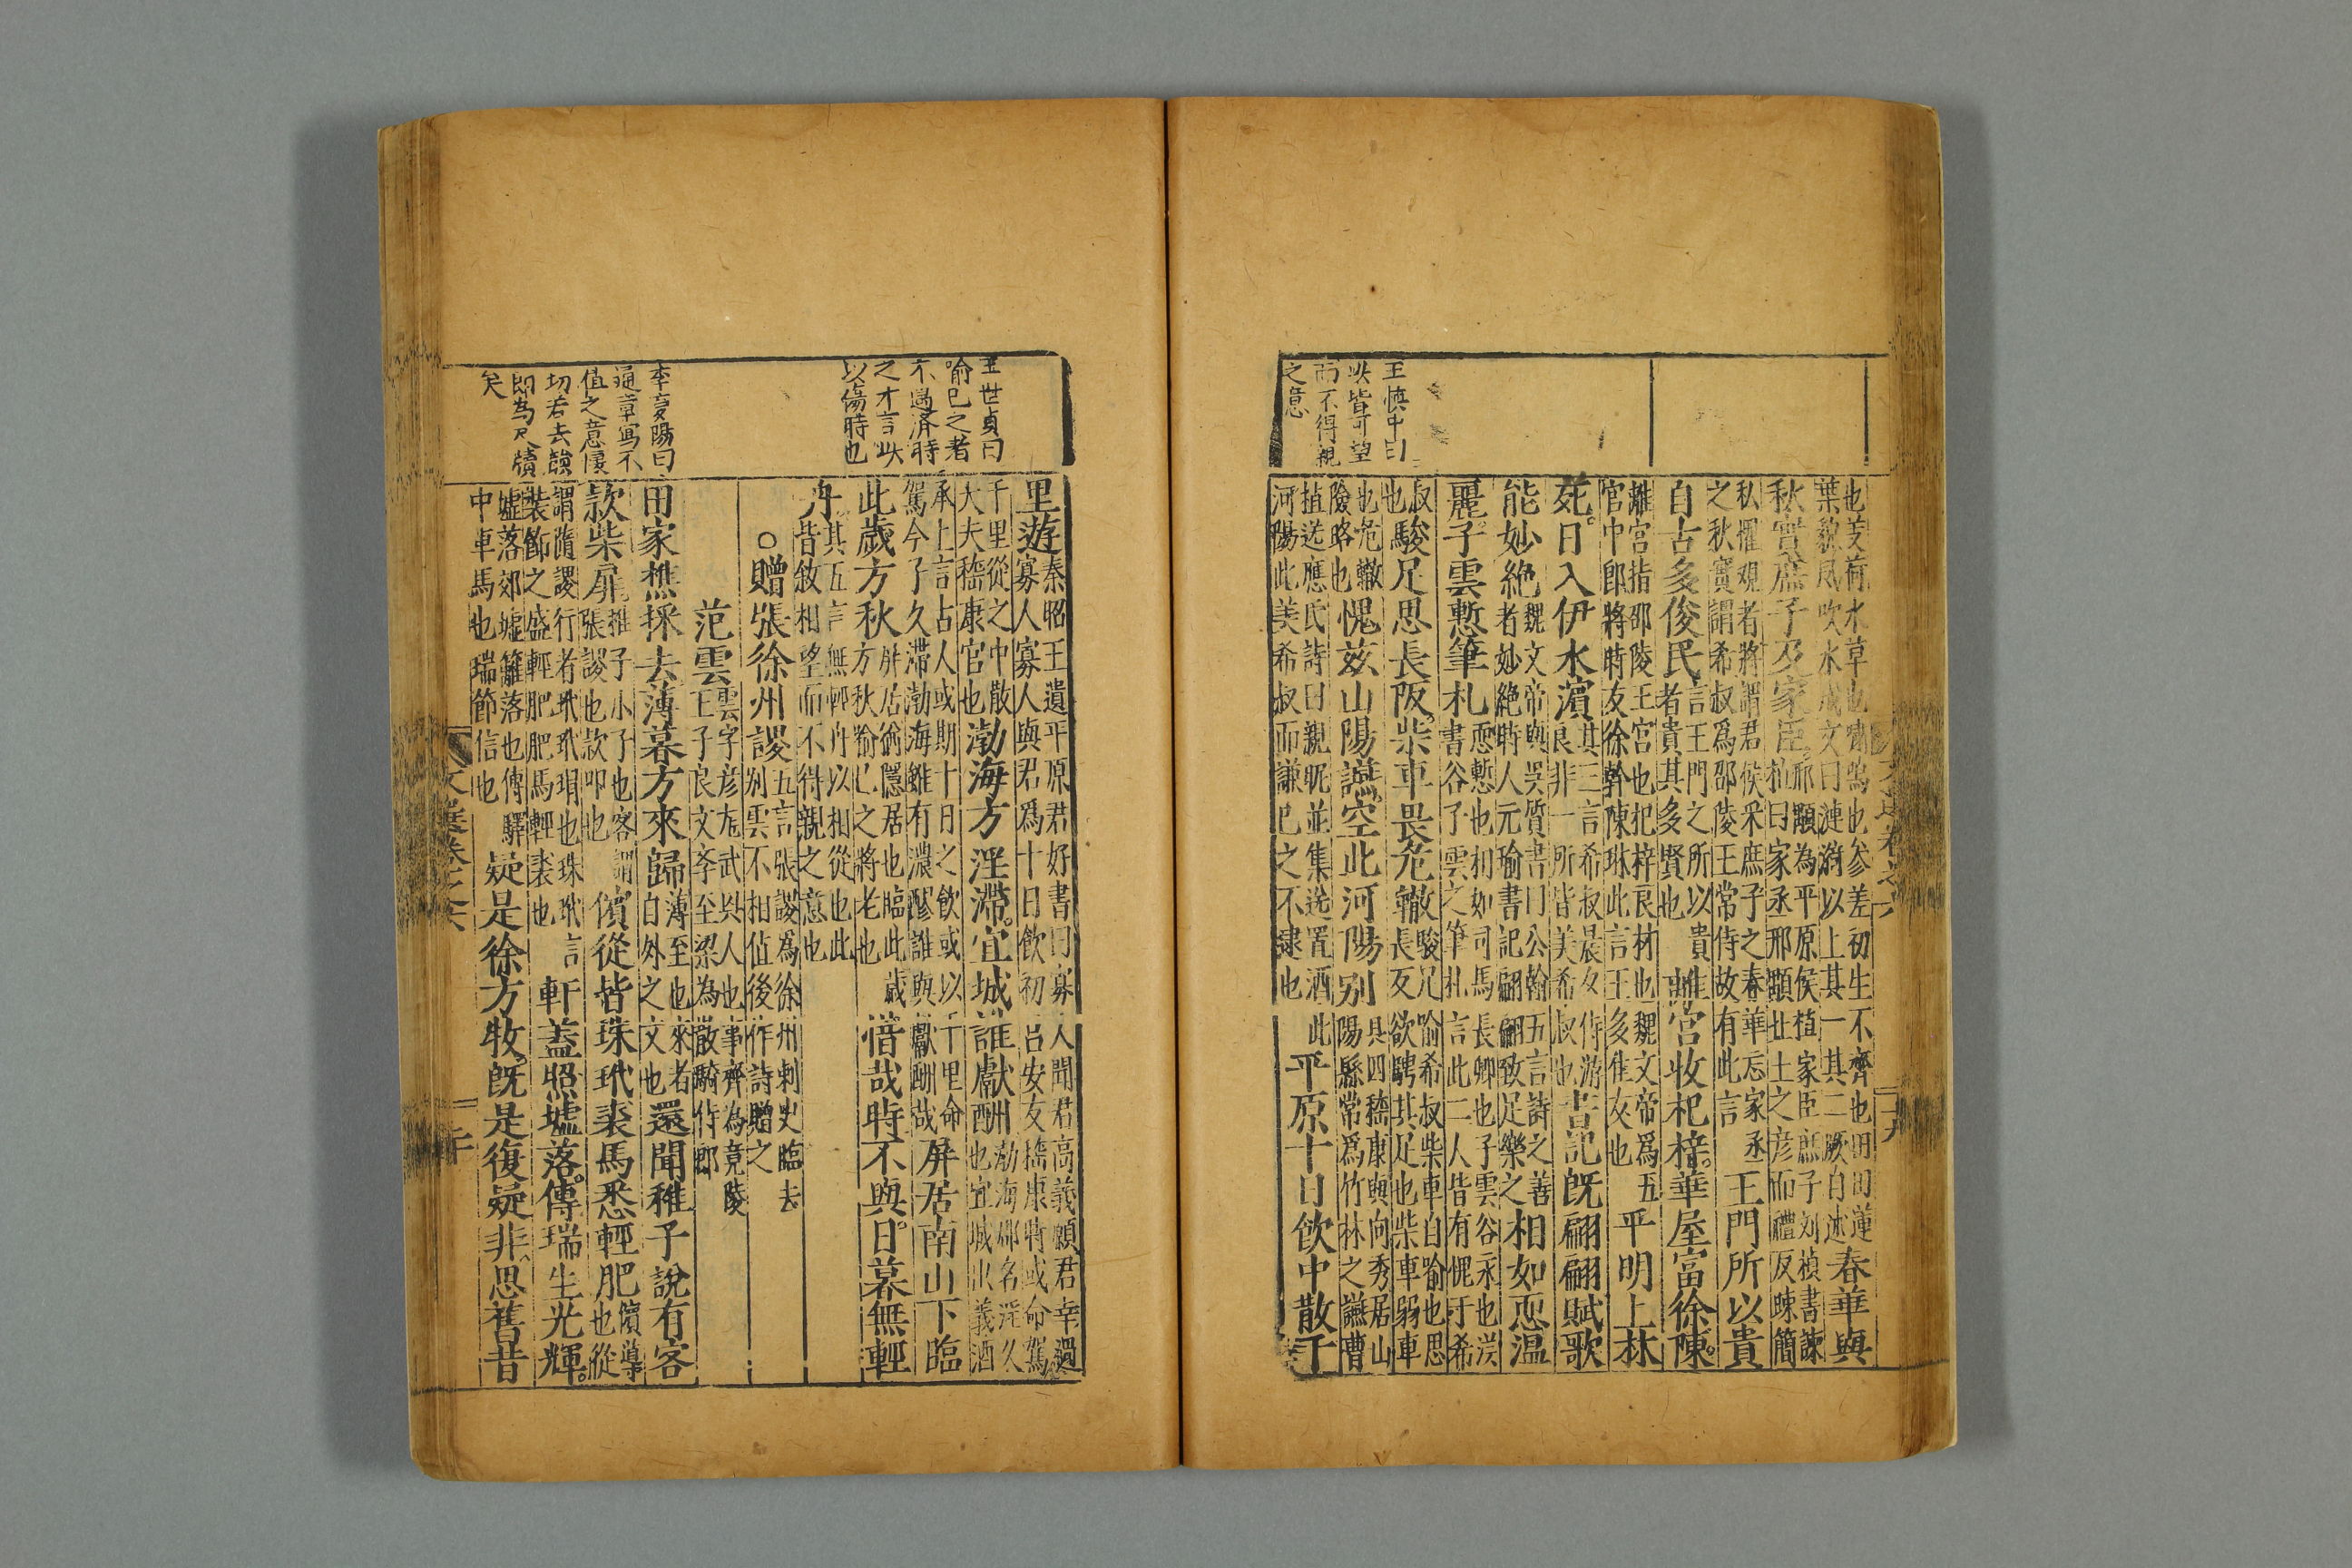 王慎中曰
此皆可望
而不得親
之意
也芰荷水草也蕭鳴也參差初生不齊也田田蓮
葉貌風吹水成文曰漣漪以上其一其二厥白述
春華與
秋實庶子及家臣
邢顒為平原侯植家臣庶子刘禎書諫
植曰家丞邢顒北土之彥而禮反疎簡
私懼观者將謂君侯采庶子之春華忘家丞
之秋實謂希叔爲邵陵王常侍故有此言
王門所以貴
自古多俊民
言王門之所以貴
者貴其多賢也
離宮收杞梓。華屋富徐陳。
離宮指邵陵王宮也杞梓良材也魏文帝爲五
官中郎將時友徐幹陳琳此言王多隹友也
平明上林
苑。日入伊水濱
其三言希叔晨夕侍游
良非一所皆美希叔也
書記旣翩翩賦歌
能妙絶
魏文帝與吳質書曰公幹五言詩之善
者妙絶時人元瑜書記翩翩致足樂之
相如恧温
麗。子雲慙筆札
恧慙也相如司馬長卿也子雲谷永也渼
書谷子雲之筆札言此二人皆有愧于希
叔
也
駿足思長阪。柴車畏危轍
駿兄喻希叔柴車自喻也思
長友欲騁其足也柴車弱車
也危轍
險路也
愧茲山陽讌。空此河陽别
具四嵇康與向秀居山
陽縣常爲竹林之讌曹
植送應氏詩曰親昵並集送置酒此
河陽此美希叔而謙已之不逮也
平原十日飲中散千
王世貞曰
喻已之者
不過済時
之才言此
以傷時也
李空陽曰
通章寫不
值之意優
切若去韻
即為尺牘
矣
里遊
秦昭王遺平原君好書曰寡人聞君高義願君幸過
寡人寡人與君爲十日飲初呂安友嵇康時或命駕
千里從之中散
大夫嵇康官也
渤海方淫滯。宜城誰獻酬
渤海郡名淫久
也宜城出義酒
承上言古人或期十日之飲或以千里命
駕今子久滯渤海雖有濃醪誰與獻酬哉
屏居南山下臨
此歲方秋
屏居猶隱居也臨此歲
方秋喻已之將老也
惜哉時不與。日暮無輕
舟。
其五言無輕舟以相從也此
皆敘相望而不得親之意也
○贈張徐州謖
五言張謖爲徐州刺史臨去
别雲不相值後作詩贈之
范雲
雲字彦龙武興人也事齊為竟陵
王子良文李至梁為散騎侍郎
田家樵採去薄暮方來歸
薄至也來者
自外之文也
還聞稚子說有客
欵柴扉
稚子小子也客謂
張謖也欵叩也
儐從皆珠玳裘馬悉輕肥
儐導
也從
謂隋謖行者玳玳瑁也珠玳言
裝飾之盛輕肥肥馬輕裘也
軒蓋照墟落。傳瑞生光輝。
墟落郊墟籬落也傳驛
中車馬也瑞節信也
疑是徐方牧。旣是復疑非。思舊昔